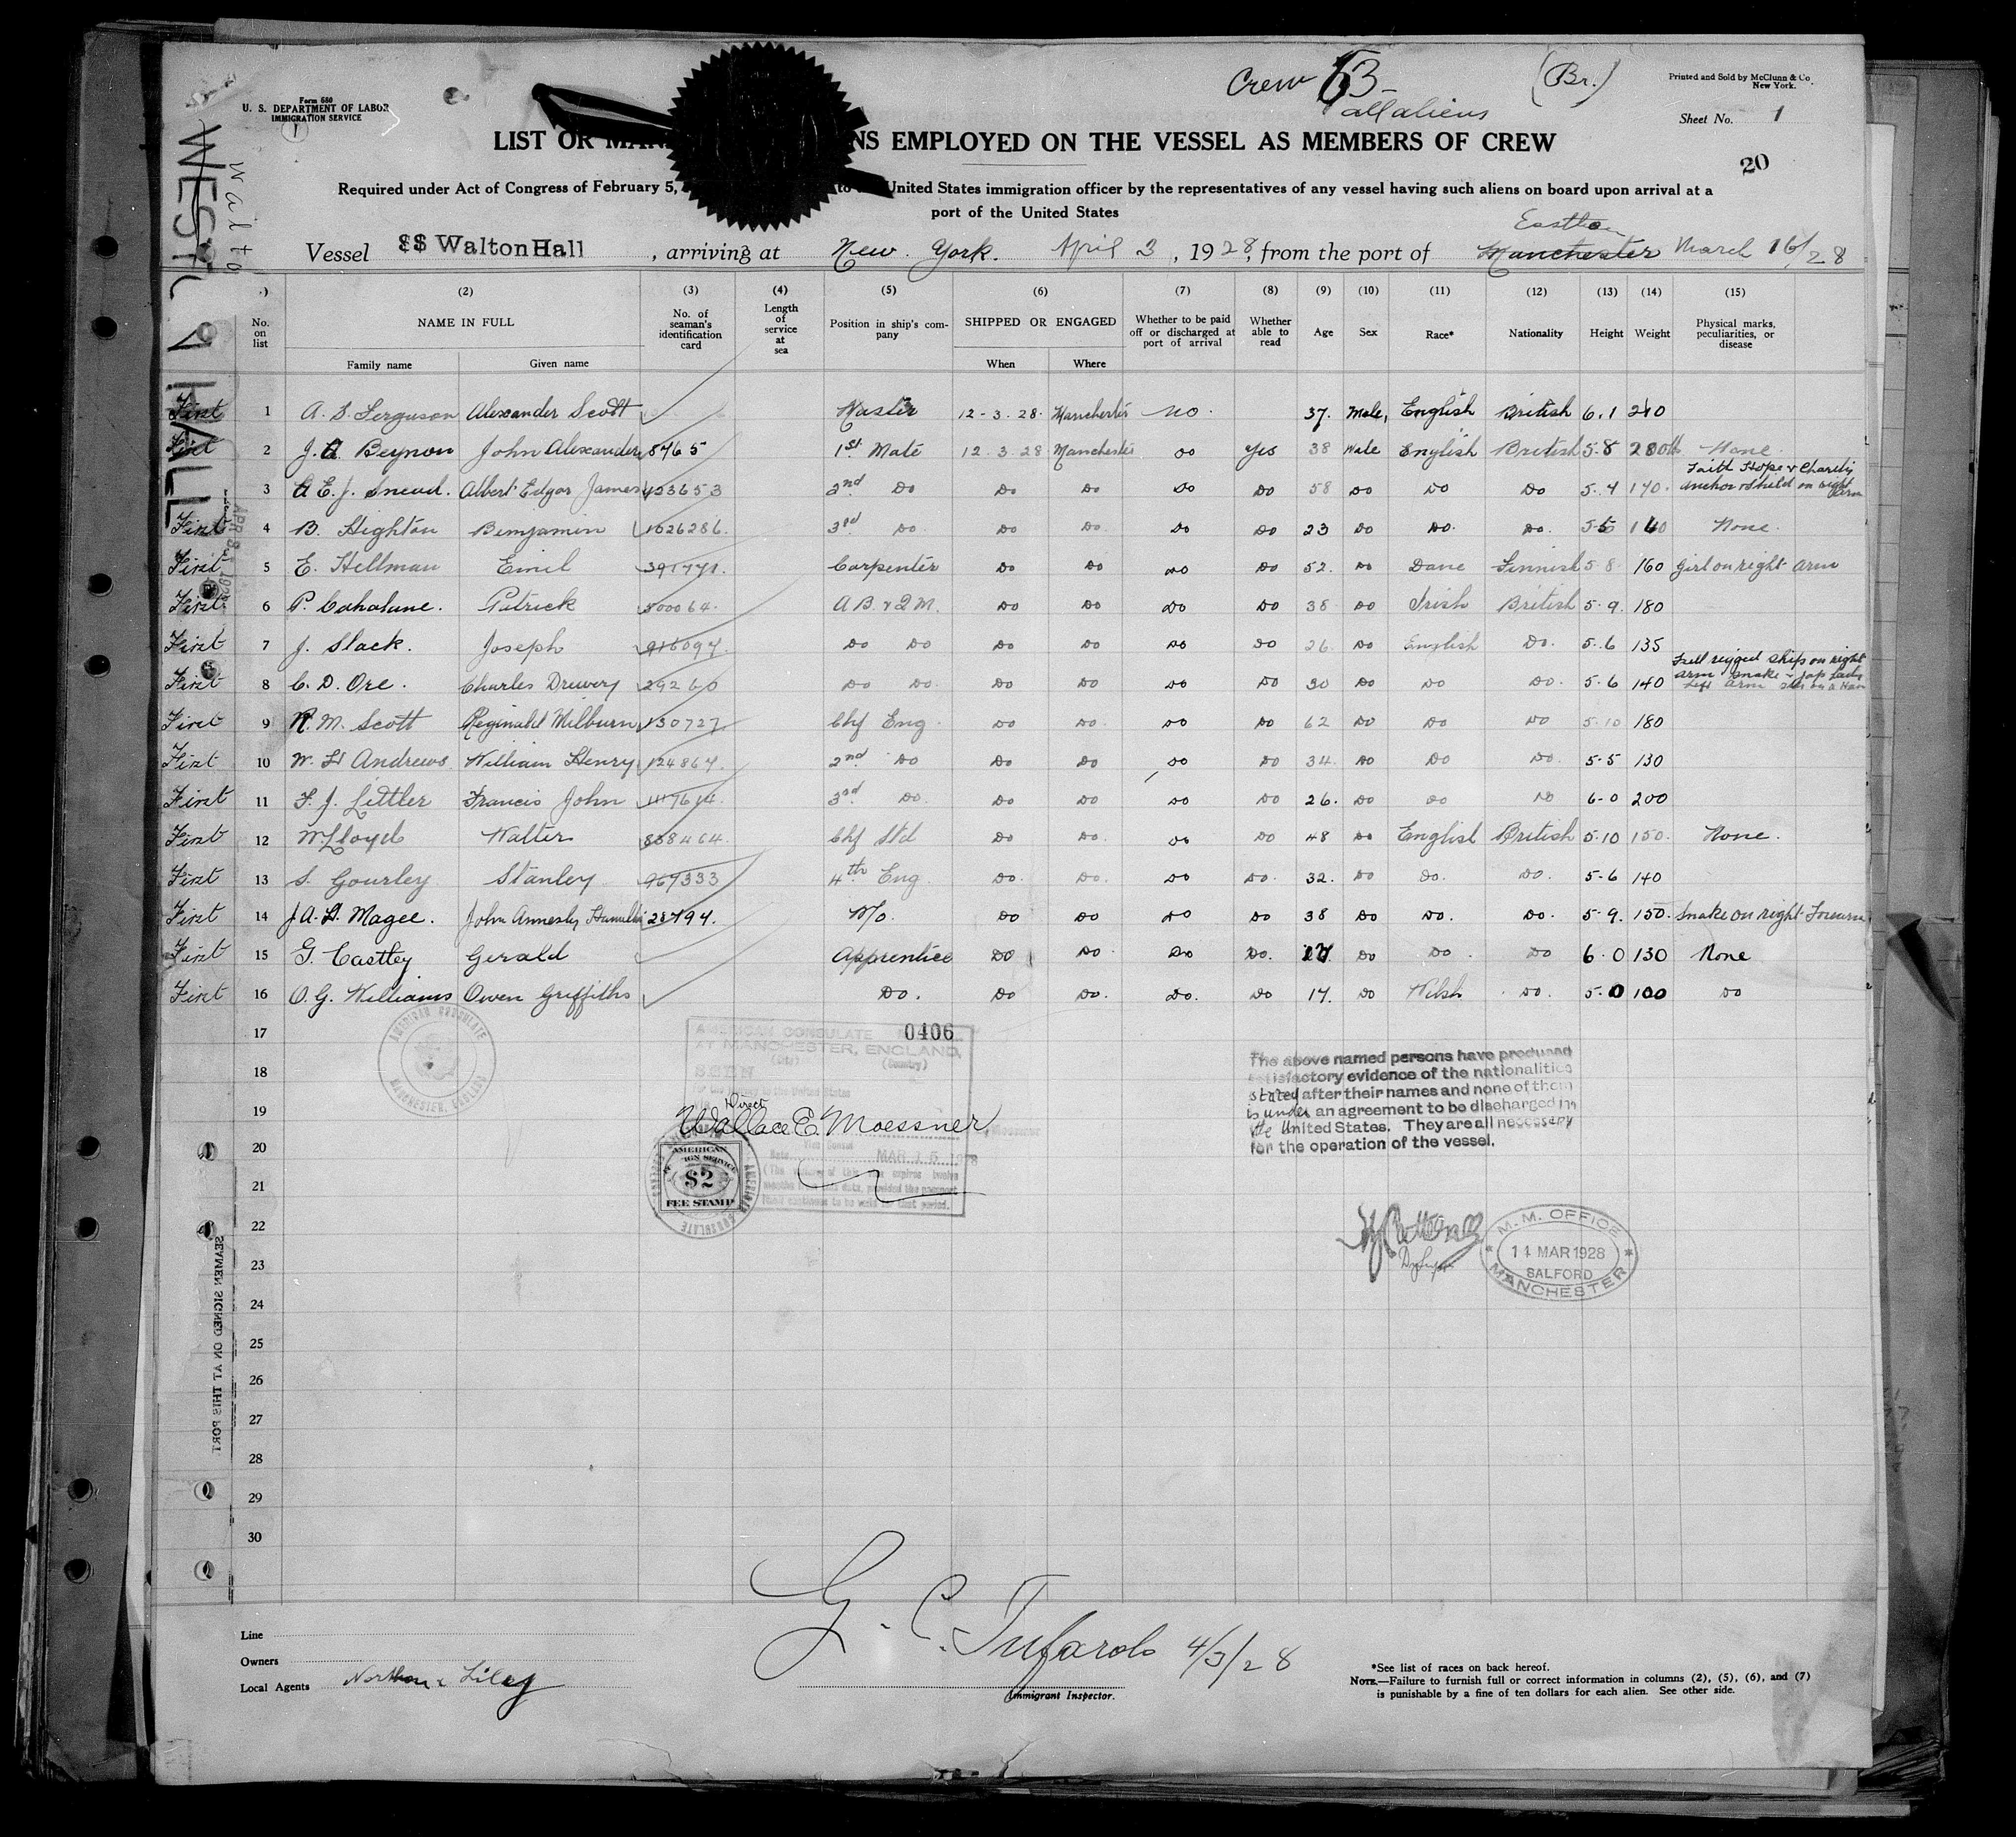 Crew 53 (Br.)
all aliens
Printed and Sold by McClunn & Co.
New York.
Form 680
U. S. DEPARTMENT OF LABOR
IMMIGRATION SERVICE
Sheet No. 1
20
LIST OR MAN NS EMPLOYED ON THE VESSEL AS MEMBERS OF CREW
Required under Act of Congress of February 5, to United States immigration officer by the representatives of any vessel having such aliens on board upon arrival at a
port of the United States
Vessel SS Walton Hall, arriving at New York. April 3, 1928, from the port of Manchester March 16/28
(2) (3) (4) (5) (6) (7) (8) (9) (10) (11) (12) (13) (14) (15)
No. on list NAME IN FULL No. of seaman's identification card Length of service at sea Position in ship's company SHIPPED OR ENGAGED Whether to be paid off or discharged at port of arrival Whether able to read Age Sex Race* Nationality Height Weight Physical marks, peculiarities, or disease
Family name Given name When Where
First 1 A. S. Ferguson Alexander Scott Master 12-3-28 Manchester no. 37. Male, English British 6.1 210
First 2 J. A. Beynon John Alexander 8465 1st Mate 12.3.28 Manchester Do Yes 38 Male English British 5-8 None
3 A. E. J. Snead. Albert Edgar James 433653 2nd Do Do Do Do Do 58 Do Do Do 5.4 140. Faith Hope & Charity Anchor & Shield on right arm
First 4 B. Highton Benjamin 1026286. 3rd Do Do Do Do Do 23 Do Do. Do. 5-5 140 None.
First 5 E. Hellman Emil Carpenter Do Do Do Do 52. Do Dane Finnish 5 8 160 Girl on right arm
First 6 P. Cahalane. Patrick 500064. A B. & Q M. Do Do Do Do 38 Do Irish British 5.9. 180
First 7 J. Slack. Joseph Do Do Do Do Do Do 26. Do English Do. 5.6 135
First 8 C. D. Ore. Charles Drewery 29260 Do Do. Do Do Do Do 30 Do Do Do. 5.6 140 Full rigged ship on right arm snake & Jap Lady Left arm
First 9 R. M. Scott Reginald Milburn 130727 Chf Eng. Do Do Do Do 62 Do Do Do 5.10 180
First 10 W. H. Andrews William Henry 124864. 2nd Do Do Do Do Do 34. Do Do Do. 5-5 130
First 11 F. J. Littler Francis John 3rd Do. Do Do Do Do 26. Do Do Do 6-0 200
First 12 W. Lloyd Walter 838464. Chf Std Do Do. Do Do 48 Do English British 5.10 150. None.
First 13 S. Gourley Stanley 967333 4th Eng. Do. Do. Do Do. 32. Do Do. Do. 5-6 140
First 14 J A. H. Magee. John Annesley W/o. Do Do Do Do 38 Do Do. Do. 5-9. 150. Snake on right Forearm
First 15 G. Castley Gerald Apprentice Do Do. Do Do. 17. Do Do. Do 6.0 130 None
First 16 O. G. Williams Owen Griffiths Do. Do Do. Do. Do 17. Do Welsh Do. 5.0 100 Do
17
18
19
20
21
22
23
24
25
26
27
28
29
30
AMERICAN CONSULATE
MANCHESTER, ENGLAND
0406
AMERICAN CONSULATE
AT MANCHESTER, ENGLAND,
(City) (Country)
SEEN
Direct
Wallace E. Moessner
MAR 15 1928
AMERICAN
IGN SERVICE
$2
FEE STAMP
The above named persons have produced
satisfactory evidence of the nationalities
stated after their names and none of them
is under an agreement to be discharged in
the United States. They are all necessary
for the operation of the vessel.
M. M. OFFICE
14 MAR 1928
SALFORD
MANCHESTER
SEAMEN SIGNED ON AT THIS PORT
WESAL
HALL
Line
Owners
Local Agents Norton & Lilly
G. C. Tufarolo 4/3/28
Immigrant Inspector.
*See list of races on back hereof.
NOTE.—Failure to furnish full or correct information in columns (2), (5), (6), and (7)
is punishable by a fine of ten dollars for each alien. See other side.